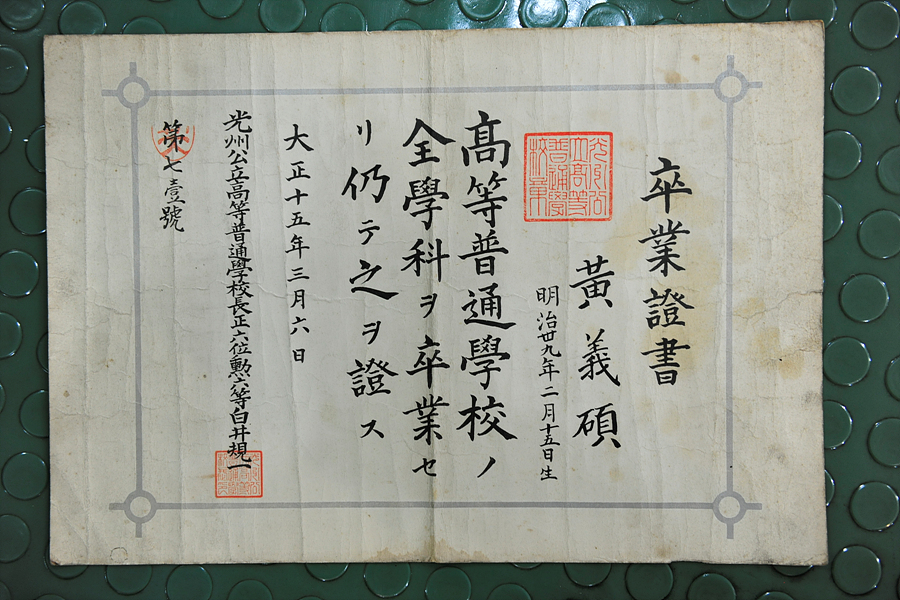 卒業證書
黃義碩
明治卅九年二月十五日生
高等普通學校ノ
全學科ヲ卒業セ
リ仍テ之ヲ證ス
大正十五年三月六日
光州公立高等普通學校長正六位勲六等白井規一
第七壹號